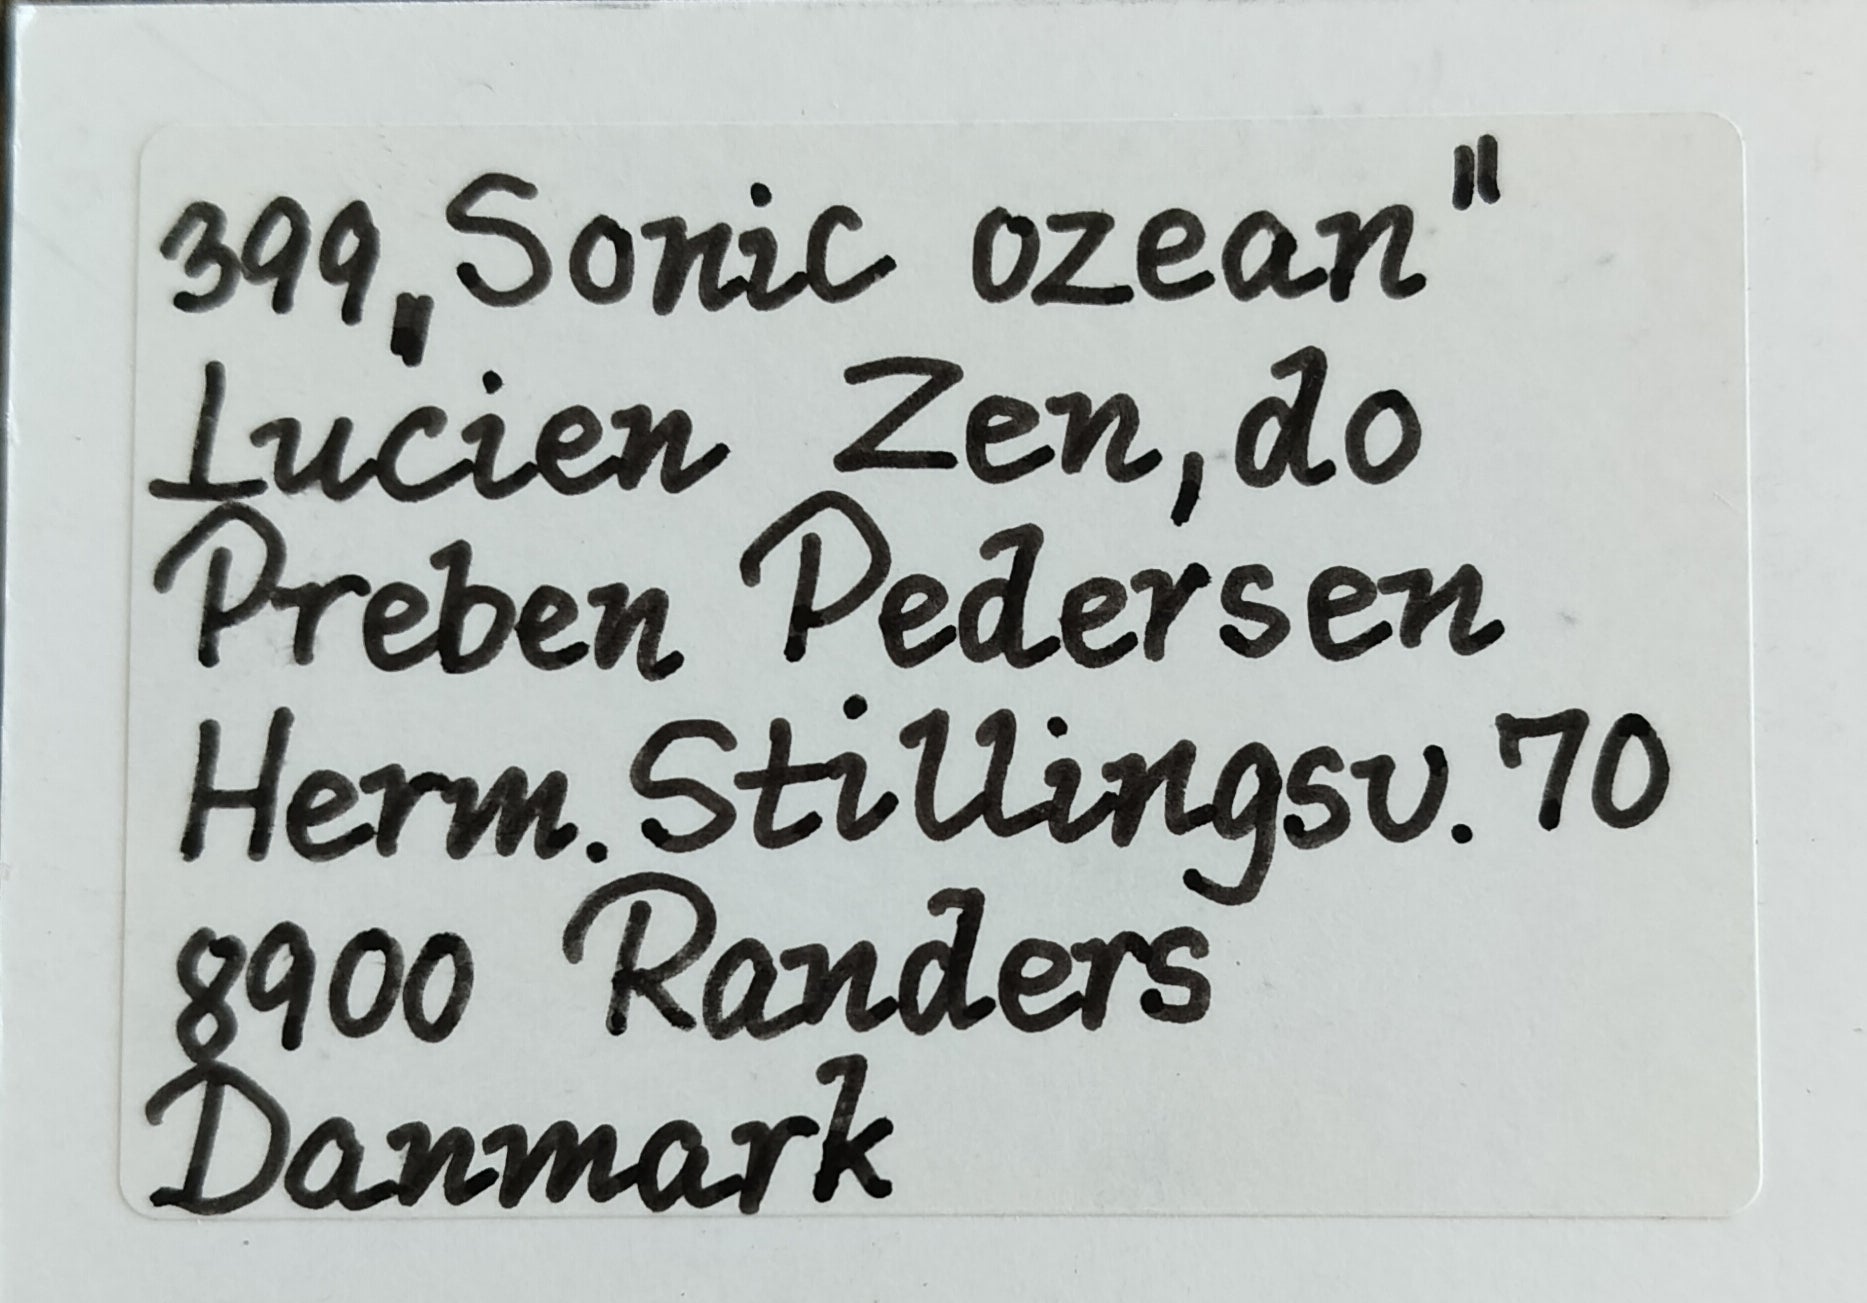 399 „Sonic ozean"
Lucien Zen, do
Preben Pedersen
Herm. Stillingsv. 70
8900 Randers
Danmark